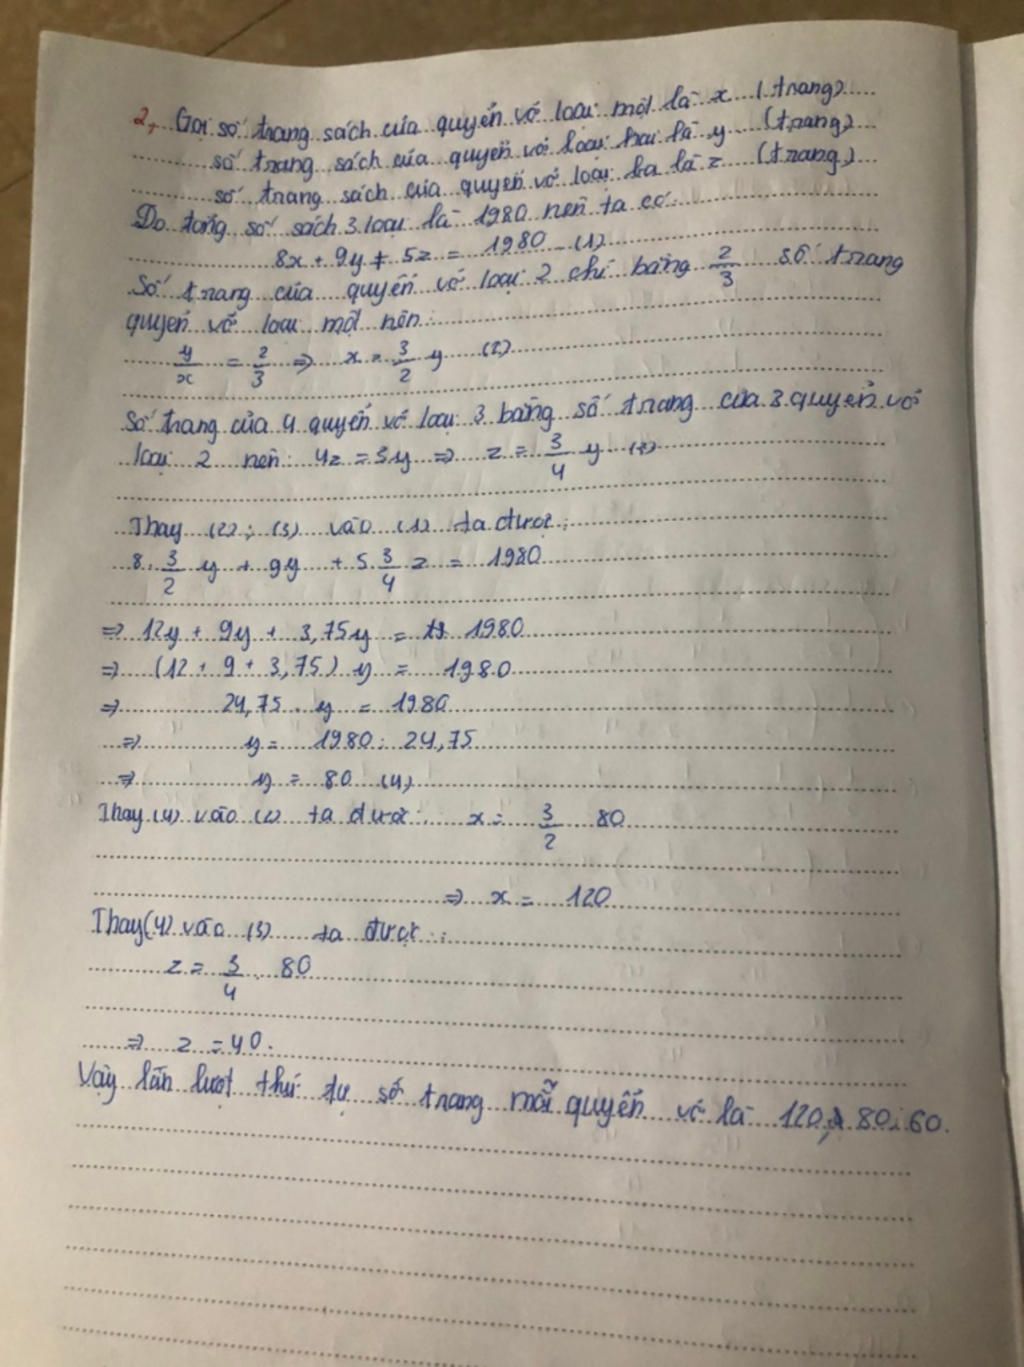 2, Gọi số trang sách của quyển vở loại một là x (trang)
số trang sách của quyển vở loại hai là y (trang)
số trang sách của quyển vở loại ba là z (trang)
Do tổng số sách 3 loại là 1980 nên ta có:
8x + 9y + 5z = 1980 (1)
Số trang của quyển vở loại 2 chỉ bằng 2/3 số trang
quyển vở loại một nên:
y/x = 2/3 => x = 3/2 y (2)
Số trang của 4 quyển vở loại 3 bằng số trang của 3 quyển vở
loại 2 nên: 4z = 3y => z = 3/4 y (3)
Thay (2); (3) vào (1) ta được:
8. 3/2 y + 9y + 5. 3/4 z = 1980
=> 12y + 9y + 3,75y = 1980
=> (12 + 9 + 3,75) y = 1980
=> 24,75 . y = 1980
=> y = 1980 : 24,75
=> y = 80 (4)
Thay (4) vào (2) ta được: x = 3/2 . 80
=> x = 120
Thay (4) vào (3) ta được:
z = 3/4 . 80
=> z = 40.
Vậy lần lượt thứ tự số trang mỗi quyển vở là 120; 80; 60.